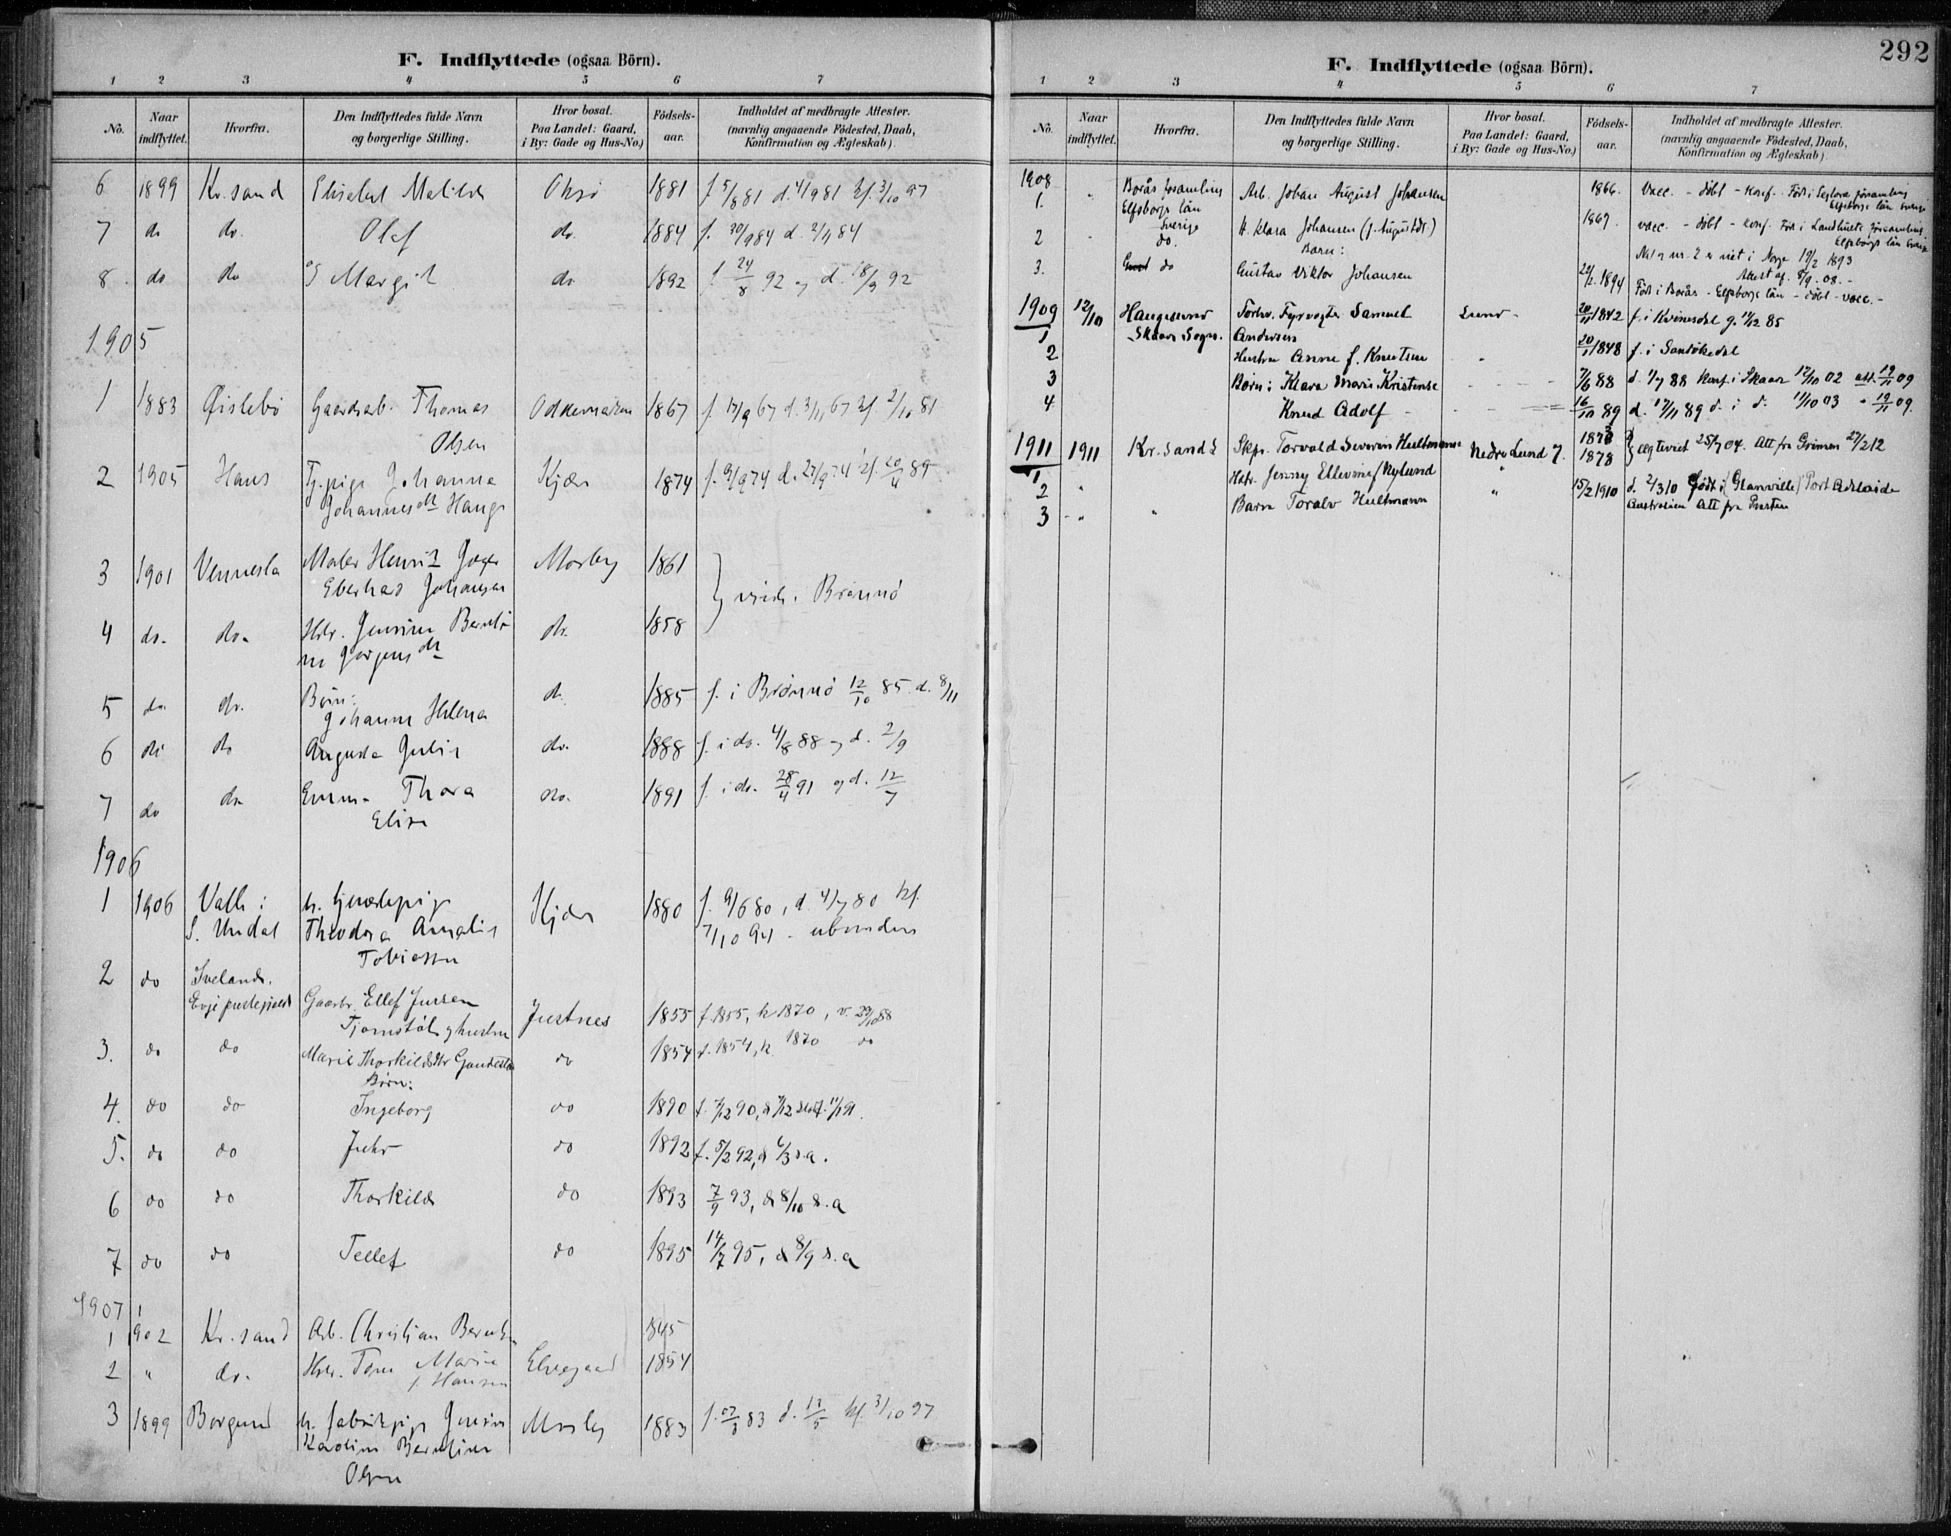 F. Indflyttede (ogsaa Börn).
1 2 3 4 5 6 7
No. Naar indflyttet. Hvorfra. Den Indflyttedes fulde Navn og borgerlige Stilling. Hvor bosat. Paa Landet: Gaard, i By: Gade og Hus-No.) Födsels-aar. Indholdet af medbragte Attester. (navnlig angaaende Födested, Daab, Konfirmation og Ægteskab)
6 1899 Kr.sand Elisabet Matilde Oksø 1881 f. 5/8 81 d. 4/9 81 kf. 3/10 97
7 do do. Olaf do. 1884 f. 30/9 84 d. 2/11 84
8. do do Margit do. 1892 f. 24/8 92 og d. 18/9 92
1905
1 1883 Øislebø Gaardsab. Thomas Oddernæsen 1867 f. 17/9 67 d. 3/11 67 kf. 2/10 81
Olsen
2 1905 Haus Tj.pige Johanna Kjær 1874 f. 9/9 74 d. 27/9 74 kf. 20/4 89
Johannesdtr Hauge
3 1901 Vennesla Maler Henrik Mosby 1861
Eberhard Johansen
viede i Brønnø
4 do. do. Hstr. Jensine do. 1858
Jørgensdtr
5 do do. Børn: d. 1885 f. i Brønnø 12/10 85. d. 8/11
Johanne Helena
6 do do Augusta Julie do. 1888 f. i do. 4/8 88 og d. 2/9
7 do do Emma Thora do. 1891 f. i do. 28/4 91 og d. 12/7
Elise
1906
1 1906 Valle i Kjær 1880 f. 9/6 80, d. 4/7 80 kf.
S. Undal Theodora Amalie 7/10 94 - ubunden
Tobiassen
2 do Iveland,
Evje prestegjeld Gaardbr. Ellef Jensen Justnes 1855 f. 1855, k 1870, v. 29/10 88
Tjomstøl og hustru
3. do do Marie Thorkildsdtr do 1854 f. 1854, k. 1870 do
Børn:
4. do do Ingeborg do 1890
5. do do Jens do 1892 f. 5/2 92, d 6/3 s.a.
6 do do Thorkild do 1893 7/9 93, d 8/10 s.a
7 do do Tellef do 1895 14/7 95, d 8/9 s.a
1907
1 1902 Kr.sand Arb. Christian 1845
2 " do. Hstr. Marie Elvegaard 1854
f. Hansen
3 1899 Borgund u. fabrikpige Jensine Mosby 1883 kf. 3/10 97
Karoline
Olsen
292
F. Indflyttede (ogsaa Börn).
1 2 3 4 5 6 7
No. Naar indflyttet. Hvorfra. Den Indflyttedes fulde Navn og borgerlige Stilling. Hvor bosat. Paa Landet: Gaard, i By: Gade og Hus-No.) Födsels-aar. Indholdet af medbragte Attester. (navnlig angaaende Födested, Daab, Konfirmation og Ægteskab)
1908
1. " Borås forsamling Arb. Johan August Johansen 1866. Vacc. - døbt - konf. Født i forsamling
Elfsborgs län Elfsborgs län Sverige
Sverige
2 do. H. Klara Johansen (f. Augustdt.) 1869. vacc. - døbt - konf. Født i Landhults forsamling
Barn: Elfsborgs län Sverige
No 1 og nr. 2 er viet i Norge 19/2 1893
3. do Gustav Viktor Johansen 1894 Attest af 8/9 - 08. -
Født i Borås - Elfsborgs län - døbt - vacc. -
1909 12/10 Haugesund Forhv. Fyrvogter Samuel Lund - 20/11 1842 f. i Kvinesdal
1 Skaare Sogn. Andersen
2 Hustru Anne f. Knutsen " 20/1 1848 f. i Sandøkedal
3 Børn: Klara Marie Kristense 7/6 88 d. 1/7 88 konf. i Skaare 12/10 02 att. 19/11 09
4 Knud Adolf - 16/10 89 d. 17/11 89 d. i d. 11/10 03 " 19/11 09.
1911 1911 Kr.sand S Skpr. Torvald Severin Hultmann Nedre Lund 7. 1873 ægteviet 25/7 04. Att fra Grimen 27/2 12
1878
1
2 " Hstr. Jenny f. Nylund "
3 - " " Barn Toralv Hultmann " 15/2 1910 d. 2/3 10 født i (Glanville) Port Adelaide
Australien Att fra Presten